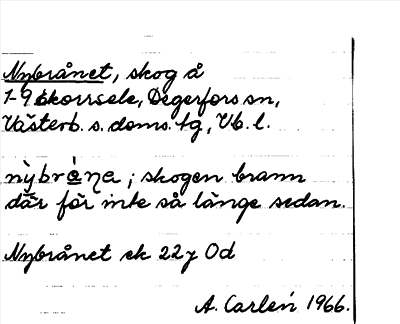 Nybrånet, skog å
1-9 Skorrsele, Degerfors sn,
Västerb. s. doms. tg, Vb. l.
nỳbrå̀ŋa ; skogen brann
där för inte så länge sedan.
Nybrånet ek 22 y 0d
A. Carlén 1966.